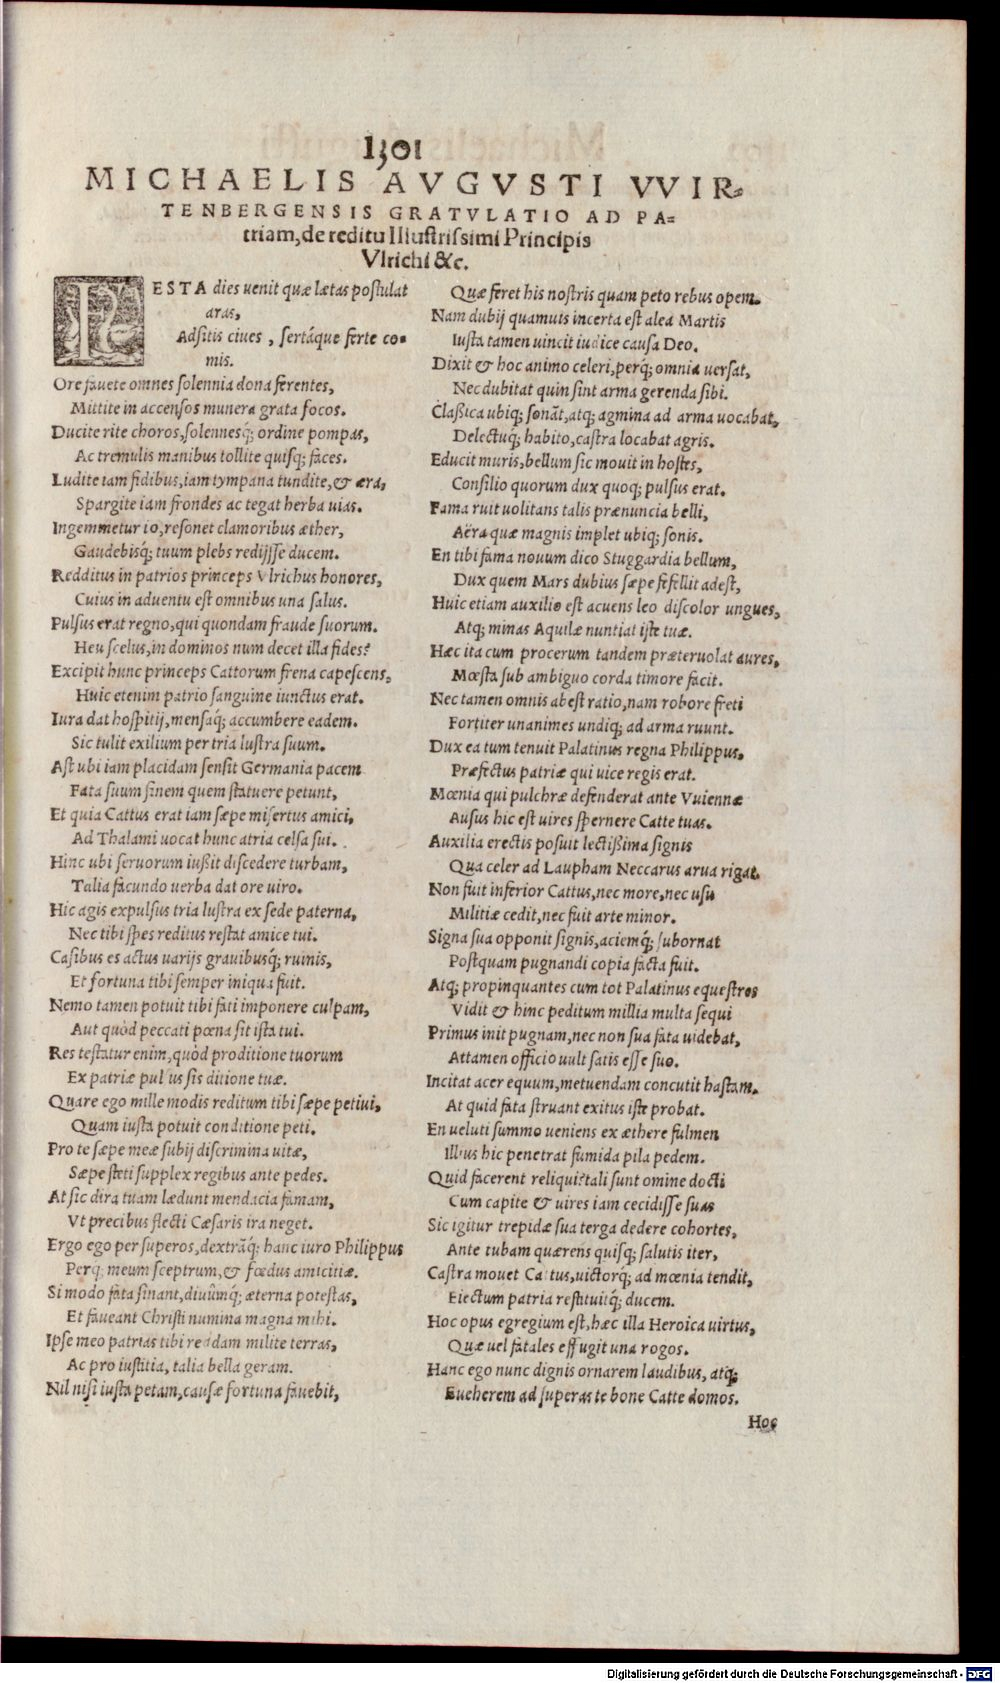 1301
MICHAELIS AVGVSTI VVIR=
TENBERGENSIS GRATVLATIO AD PA=
triam, de reditu Illustrissimi Principis
Vlrichi &c.
FESTA dies uenit quæ lætas postulat
aras,
Adsitis ciues, sertáque ferte co=
mis.
Ore fauete omnes solennia dona ferentes,
Mittite in accensos munera grata focos.
Ducite rite choros, solennesq́; ordine pompas,
Ac tremulis manibus tollite quisq; faces.
Ludite iam fidibus, iam tympana tundite, & æra,
Spargite iam frondes ac tegat herba uias.
Ingemmetur io, resonet clamoribus æther,
Gaudebisq́; tuum plebs redijsse ducem.
Redditus in patrios princeps Vlrichus honores,
Cuius in aduentu est omnibus una salus.
Pulsus erat regno, qui quondam fraude suorum.
Heu scelus, in dominos num decet illa fides?
Excipit hunc princeps Cattorum frena capescens,
Huic etenim patrio sanguine iunctus erat.
Iura dat hospitij, mensaq́; accumbere eadem.
Sic tulit exilium per tria lustra suum.
Ast ubi iam placidam sensit Germania pacem
Fata suum finem quem statuere petunt,
Et quia Cattus erat iam sæpe misertus amici,
Ad Thalami uocat hunc atria celsa sui.
Hinc ubi seruorum iußit discedere turbam,
Talia facundo uerba dat ore uiro.
Hic agis expulsus tria lustra ex sede paterna,
Nec tibi spes reditus restat amice tui.
Casibus es actus uarijs grauibusq́; ruinis,
Et fortuna tibi semper iniqua fuit.
Nemo tamen potuit tibi fati imponere culpam,
Aut quòd peccati pœna sit ista tui.
Res testatur enim, quòd proditione tuorum
Ex patriæ pulsus sis ditione tuæ.
Quare ego mille modis reditum tibi sæpe petiui,
Quam iusta potuit conditione peti.
Pro te sæpe meæ subij discrimina uitæ,
Sæpe steti supplex regibus ante pedes.
At sic dira tuam lædunt mendacia famam,
Vt precibus flecti Cæsaris ira neget.
Ergo ego per superos, dextrãq́; hanc iuro Philippus
Perq́; meum sceptrum, & fœdus amicitiæ.
Si modo fata sinant, diuûmq́; æterna potestas,
Et faueant Christi numina magna mihi.
Ipse meo patrias tibi reddam milite terras,
Ac pro iustitia, talia bella geram.
Nil nisi iusta petam, causæ fortuna fauebit,
Quæ feret his nostris quam peto rebus opem.
Nam dubij quamuis incerta est alea Martis
Iusta tamen uincit iudice causa Deo.
Dixit & hoc animo celeri, perq́; omnia uersat,
Nec dubitat quin sint arma gerenda sibi.
Claßica ubiq; sonãt, atq; agmina ad arma uocabat,
Delectuq́; habito, castra locabat agris.
Educit muris, bellum sic mouit in hostes,
Consilio quorum dux quoq; pulsus erat.
Fama ruit uolitans talis prænuncia belli,
Aëra quæ magnis implet ubiq; sonis.
En tibi fama nouum dico Stuggardia bellum,
Dux quem Mars dubius sæpe fefellit adest,
Huic etiam auxilio est acuens leo discolor ungues,
Atq; minas Aquilæ nuntiat iste tuæ.
Hæc ita cum procerum tandem præteruolat aures,
Mœsta sub ambiguo corda timore facit.
Nec tamen omnis abest ratio, nam robore freti
Fortiter unanimes undiq; ad arma ruunt.
Dux ea tum tenuit Palatinus regna Philippus,
Præfectus patriæ qui uice regis erat.
Mœnia qui pulchræ defenderat ante Vuiennæ
Ausus hic est uires spernere Catte tuas.
Auxilia erectis posuit lectißima signis
Qua celer ad Laupham Neccarus arua rigat.
Non fuit inferior Cattus, nec more, nec usu
Militiæ cedit, nec fuit arte minor.
Signa sua opponit signis, aciemq́; subornat
Postquam pugnandi copia facta fuit.
Atq; propinquantes cum tot Palatinus equestres
Vidit & hinc peditum millia multa sequi
Primus init pugnam, nec non sua fata uidebat,
Attamen officio uult satis esse suo.
Incitat acer equum, metuendam concutit hastam.
At quid fata struant exitus iste probat.
En ueluti summo ueniens ex æthere fulmen
Illius hic penetrat fumida pila pedem.
Quid facerent reliqui? tali sunt omine docti
Cum capite & uires iam cecidisse suas
Sic igitur trepidæ sua terga dedere cohortes,
Ante tubam quærens quisq; salutis iter,
Castra mouet Cattus, uictorq́; ad mœnia tendit,
Eiectum patria restituitq́; ducem.
Hoc opus egregium est, hæc illa Heroica uirtus,
Quæ uel fatales effugit una rogos.
Hanc ego nunc dignis ornarem laudibus, atq́;
Eueherem ad superas te bone Catte domos.
Hoc
Digitalisierung gefördert durch die Deutsche Forschungsgemeinschaft - DFG